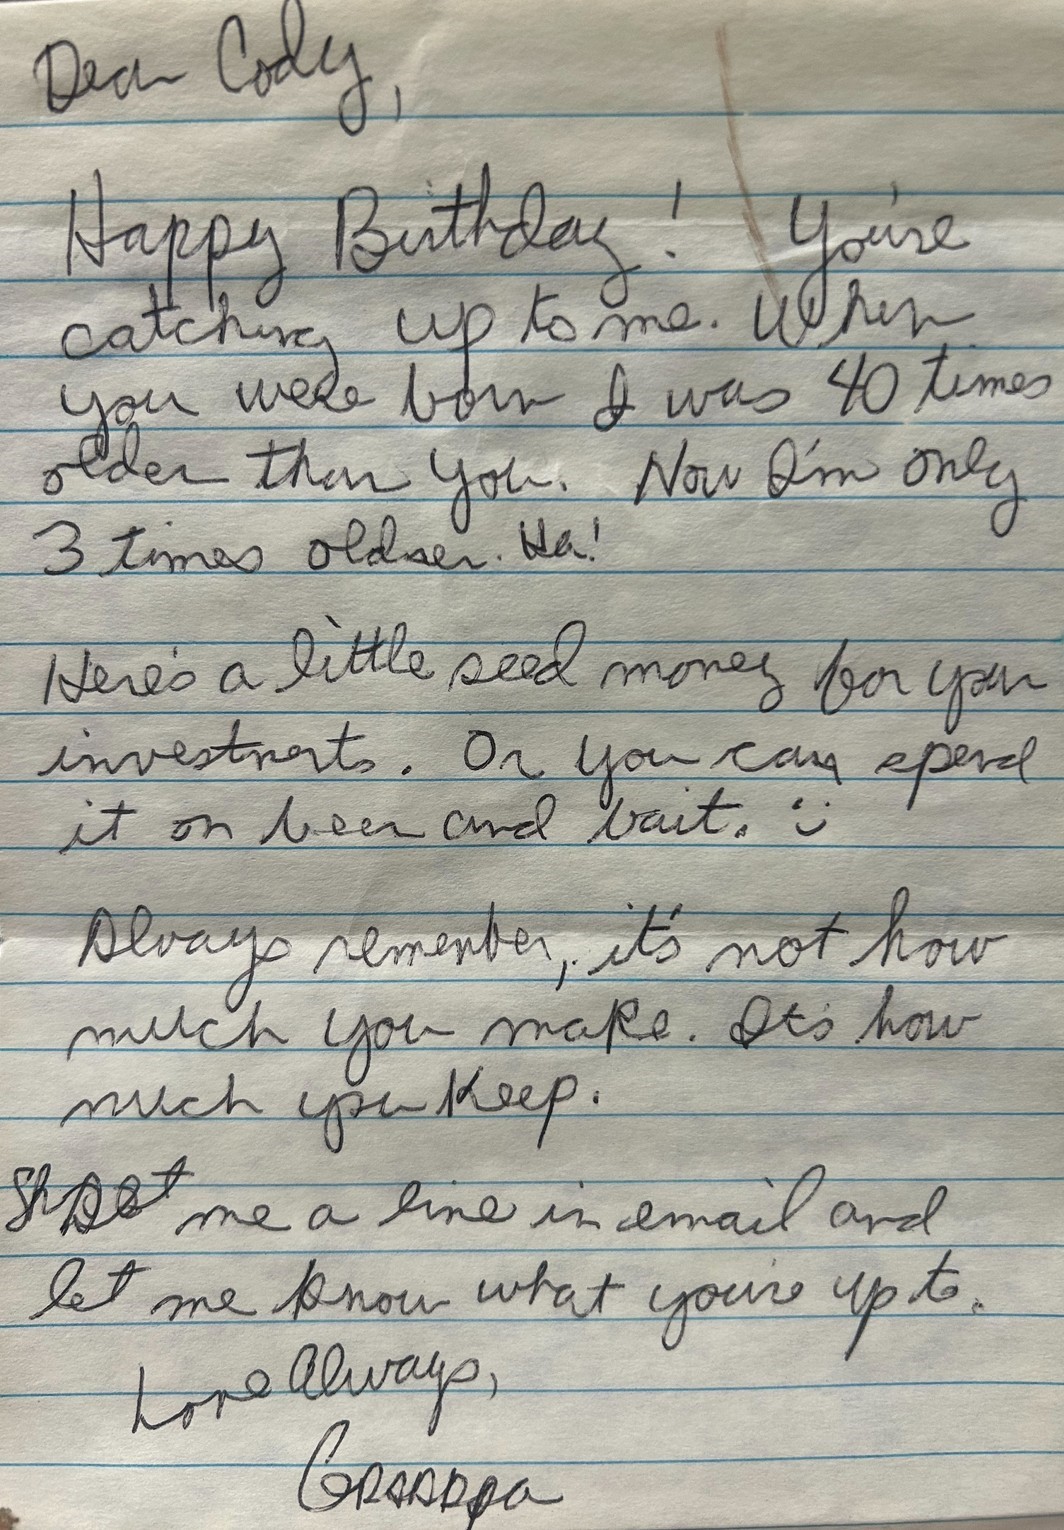 Dear Cody,
Happy Birthday! You're
catching up to me. When
you were born I was 40 times
older than you. Now I'm only
3 times older. Ha!
Here's a little seed money for your
investments. Or you can spend
it on beer and bait. :)
Always remember, it's not how
much you make. It's how
much you keep.
Shoot me a line in email and
let me know what you're up to.
Love Always,
Grandpa